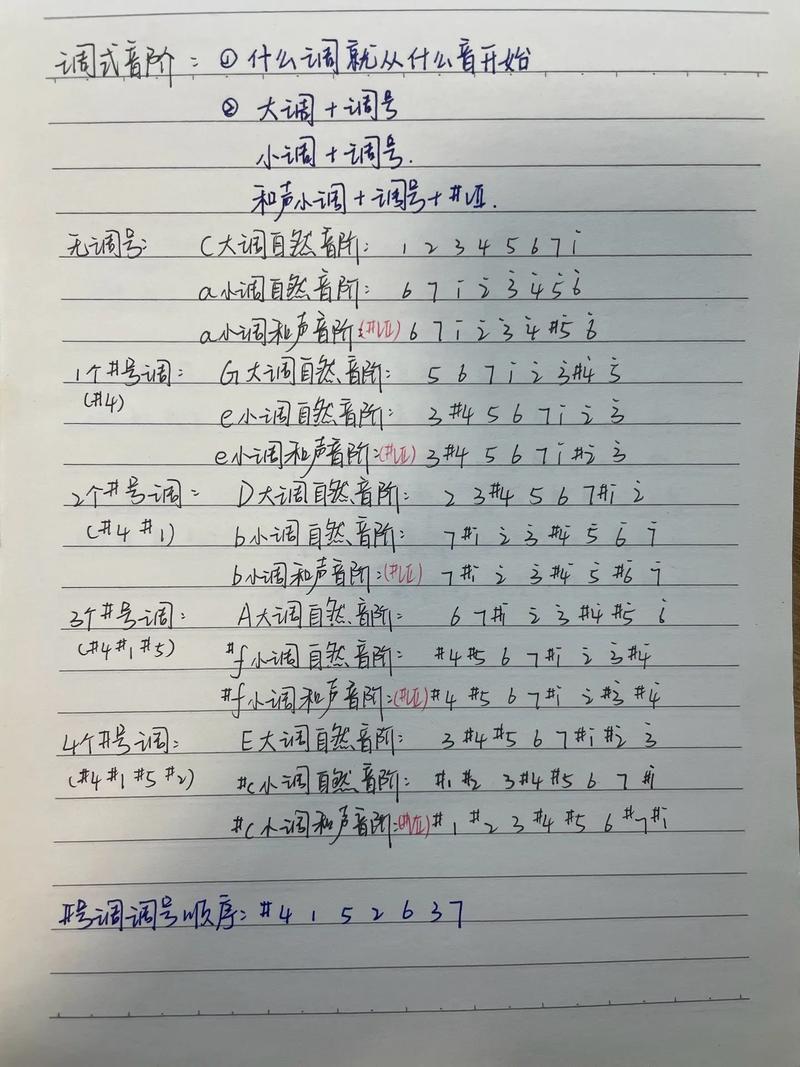 调式音阶：① 什么调就从什么音开始
② 大调＋调号
小调＋调号.
和声小调＋调号＋#Ⅶ.
无调号： C大调自然音阶： 1 2 3 4 5 6 7 i
a小调自然音阶： 6 7 i 2̇ 3̇ 4̇ 5̇ 6̇
a小调和声音阶：(#Ⅶ) 6 7 i 2̇ 3̇ 4̇ #5̇ 6̇
1个#号调： G大调自然音阶： 5 6 7 i 2̇ 3̇ #4̇ 5̇
(#4) e小调自然音阶： 3 #4 5 6 7 i 2̇ 3̇
e小调和声音阶：(#Ⅶ) 3 #4 5 6 7 i #2̇ 3̇
2个#号调： D大调自然音阶： 2 3 #4 5 6 7 #i 2̇
(#4 #1) b小调自然音阶： 7 #i 2̇ 3̇ #4̇ 5̇ 6̇ 7̇
b小调和声音阶：(#Ⅶ) 7 #i 2̇ 3̇ #4̇ 5̇ #6̇ 7̇
3个#号调： A大调自然音阶： 6 7 #i 2̇ 3̇ #4̇ #5̇ 6̇
(#4 #1 #5) #f小调自然音阶： #4 #5 6 7 #i 2̇ 3̇ #4̇
#f小调和声音阶：(#Ⅶ) #4 #5 6 7 #i 2̇ #3̇ #4̇
4个#号调： E大调自然音阶： 3 #4 #5 6 7 #i #2̇ 3̇
(#4 #1 #5 #2) #c小调自然音阶： #1 #2 3 #4 #5 6 7 #i
#c小调和声音阶：(#Ⅶ) #1 #2 3 #4 #5 6 #7 #i
#号调调号顺序：#4 1 5 2 6 3 7